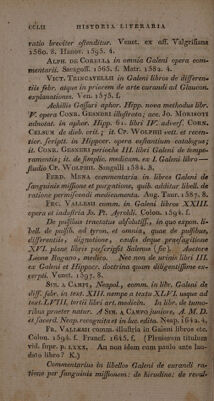 CCLII HISTORIA LITERARIA
ratio breviter ostenditur. Venet. ex aff. Valgrisiana
1580. 8. Hanov. 1595. 4.
ALPH. DE CORELLA in omnia Galeni opera com-
mentarii. Saragoss. 1565. f. Matr. 1582. 4.
VICT. TRINCAVELLII in Galeni libros de differen-
tiis febr. atque in priorem de arte curandi ad Glaucon.
explanationes. Ven. 1575. f.
Achillis Gassari aphor. Hipp. nova methodus libr.
V. opera CONR. GESNERI illustrata; acc. JO. MORISOTI
adnotat. in aphor. Hipp. 61. libri IV. adversf. CORN.
CELSUM de dieb. crit.; it. CP. WOLPHII vett. et recen-
tior. script. in Hippocr. aphorismos catalogus;
it. CONR. GESNERI perioche III. libri Galeni de tempe-
ramentis; it. de simplic. medicam. ex I. Galeni libro —
studio CP. WOLPHII. Sangalli 1584. 8.
FERD. MENA comment. in libros Galeni de
sanguinis missione et purgatione, quib. additus libell. de
ratione permiscendi medicamenta. Aug. Taur. 1587. 8.
FRC. VALLESII comm. in Galeni libros XXIII.
opera et industria Jo. Pt. Ayroldi. Colon. 1594. f.
De pulsibus tractatus absolutiss. in quo expon. li-
bell. de pulsib. ad tyron. et omnia, quae de pulsibus,
differentiis, dignotione, causis atque praesagitione
XVI. plane libris perscripsit Galenus (sc). Auctore
Leone Rogano, medico. Nec non de urinis libri III.
ex Galeni et Hippocr. doctrina quam diligentissime ex-
cerpti. Venet. 1597. 8.
SIM. A CAMPI, Neapol., comm. in libr. Galeni de
diff. febr. in text. XIII. nempe a textu XLVI. usque ad
text. LVIII, tertii libri art. medicin. In libr. de tumo-
ribus praeter natur. A SIM. A CAMPO juniore, A. M. D.
et sacerd. Neap. recognita et in luc. edita. Neap. 1642. 4.
FR. VALLESII comm. illustria in Galeni libros etc.
Colon. 1594. f. Francf. 1645. f. (Pleniorem titulum
vid. supr. p. LXXX. An non idem cum paulo ante lau-
dato libro? K.)
Commentarius in libellos Galeni de curandi ra-
tione per sanguinis missionem: de hirudine: de revul-